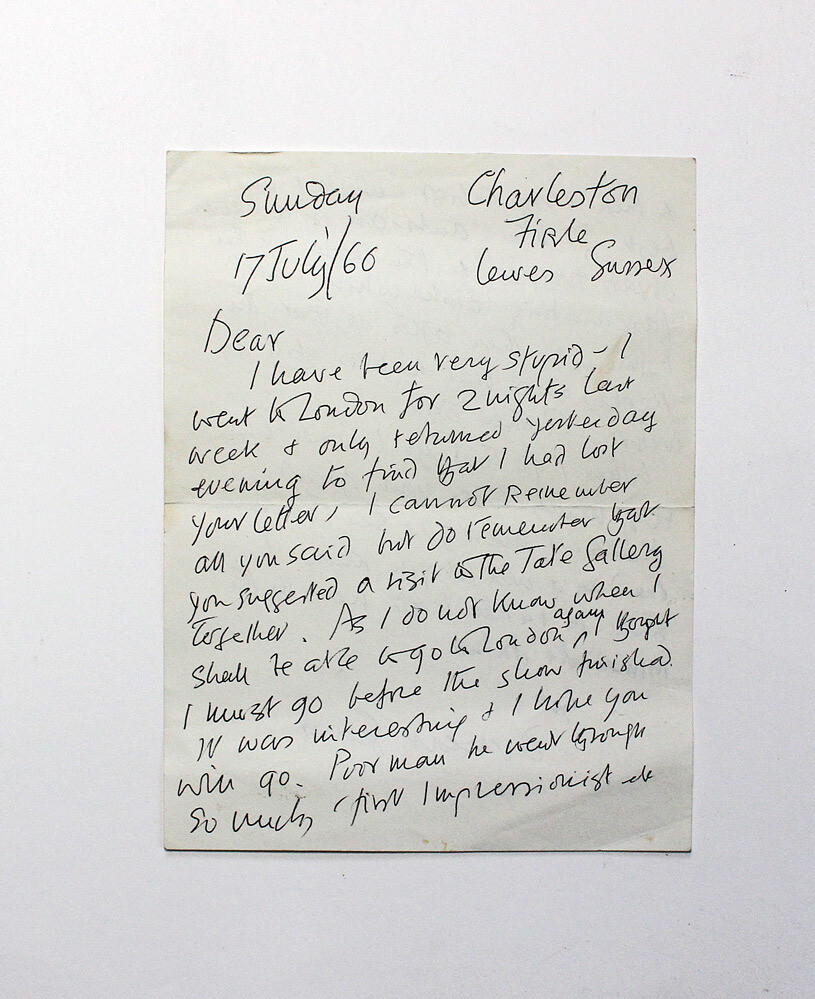 Sunday
17 July/60
Charleston
Firle
Lewes Sussex
Dear
I have been very stupid - I
went to London for 2 nights last
week & only returned yesterday
evening to find that I had lost
your letter, I cannot remember
all you said but do remember that
you suggested a visit to the Tate Gallery
together. As I do not know when I
shall be able to go to London again, I thought
I must go before the show finished.
It was interesting & I hope you
will go. Poor man he went through
so much, first Impressionist